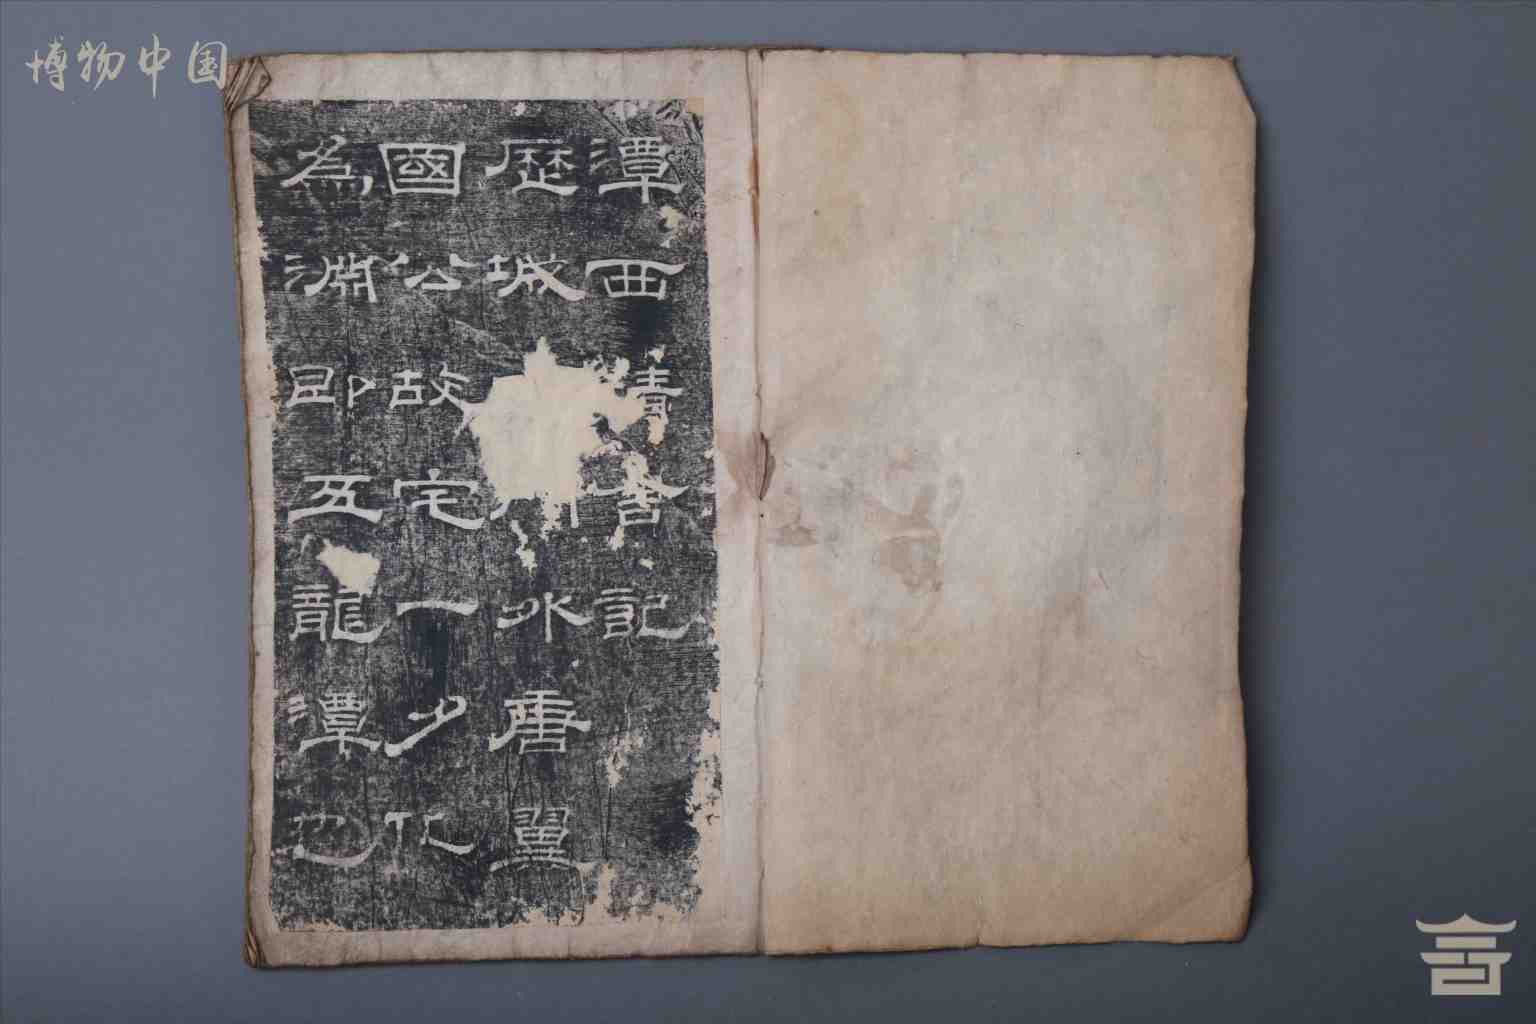 博物中国
潭西精舍記
歷城水唐翼
國公故宅一夕化
為淵即五龍潭也